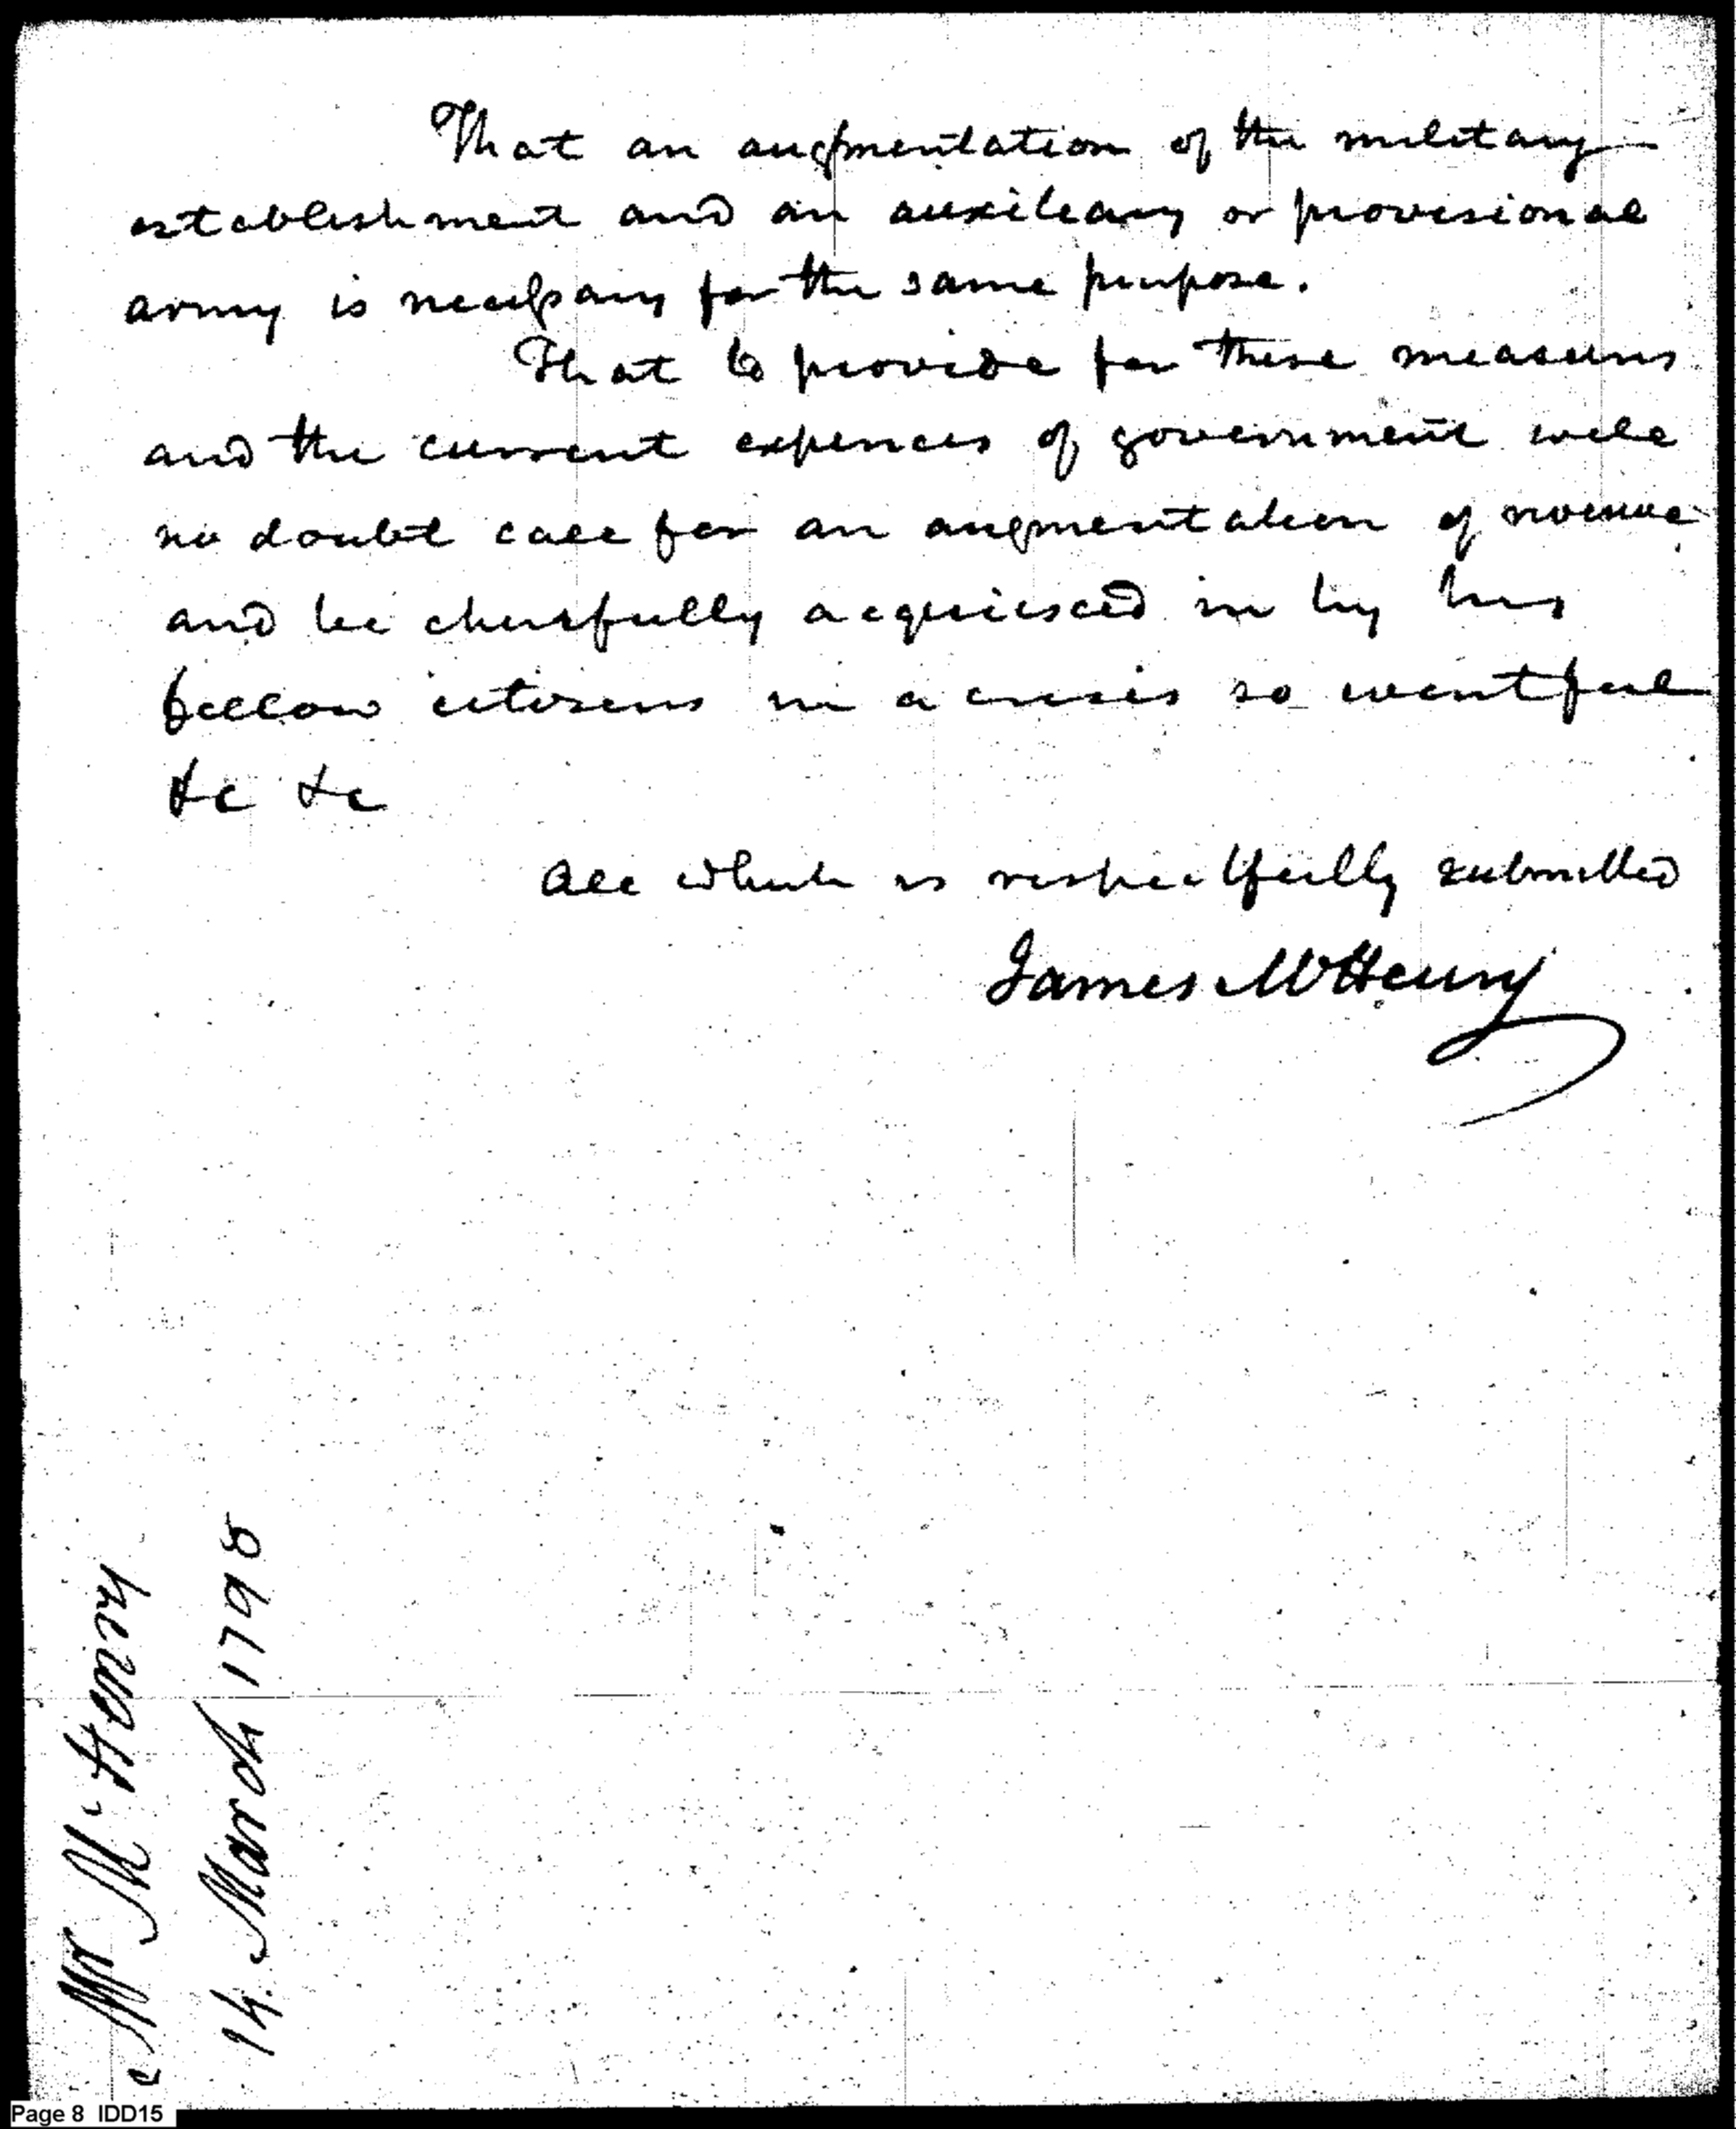 That an augmentation of the military
establishment and an auxileary or provisional
army is necessary for the same purpose.
That to provide for these measures
and the current expences of government will
no doubt call for an augmentation of revenue
and be cheerfully acquiesced in by his
fellow citizens in a crisis so eventful
&c &c
All which is respectfully submitted
James McHenry
Mr McHenry
14. March 1798
Page 8 IDD15